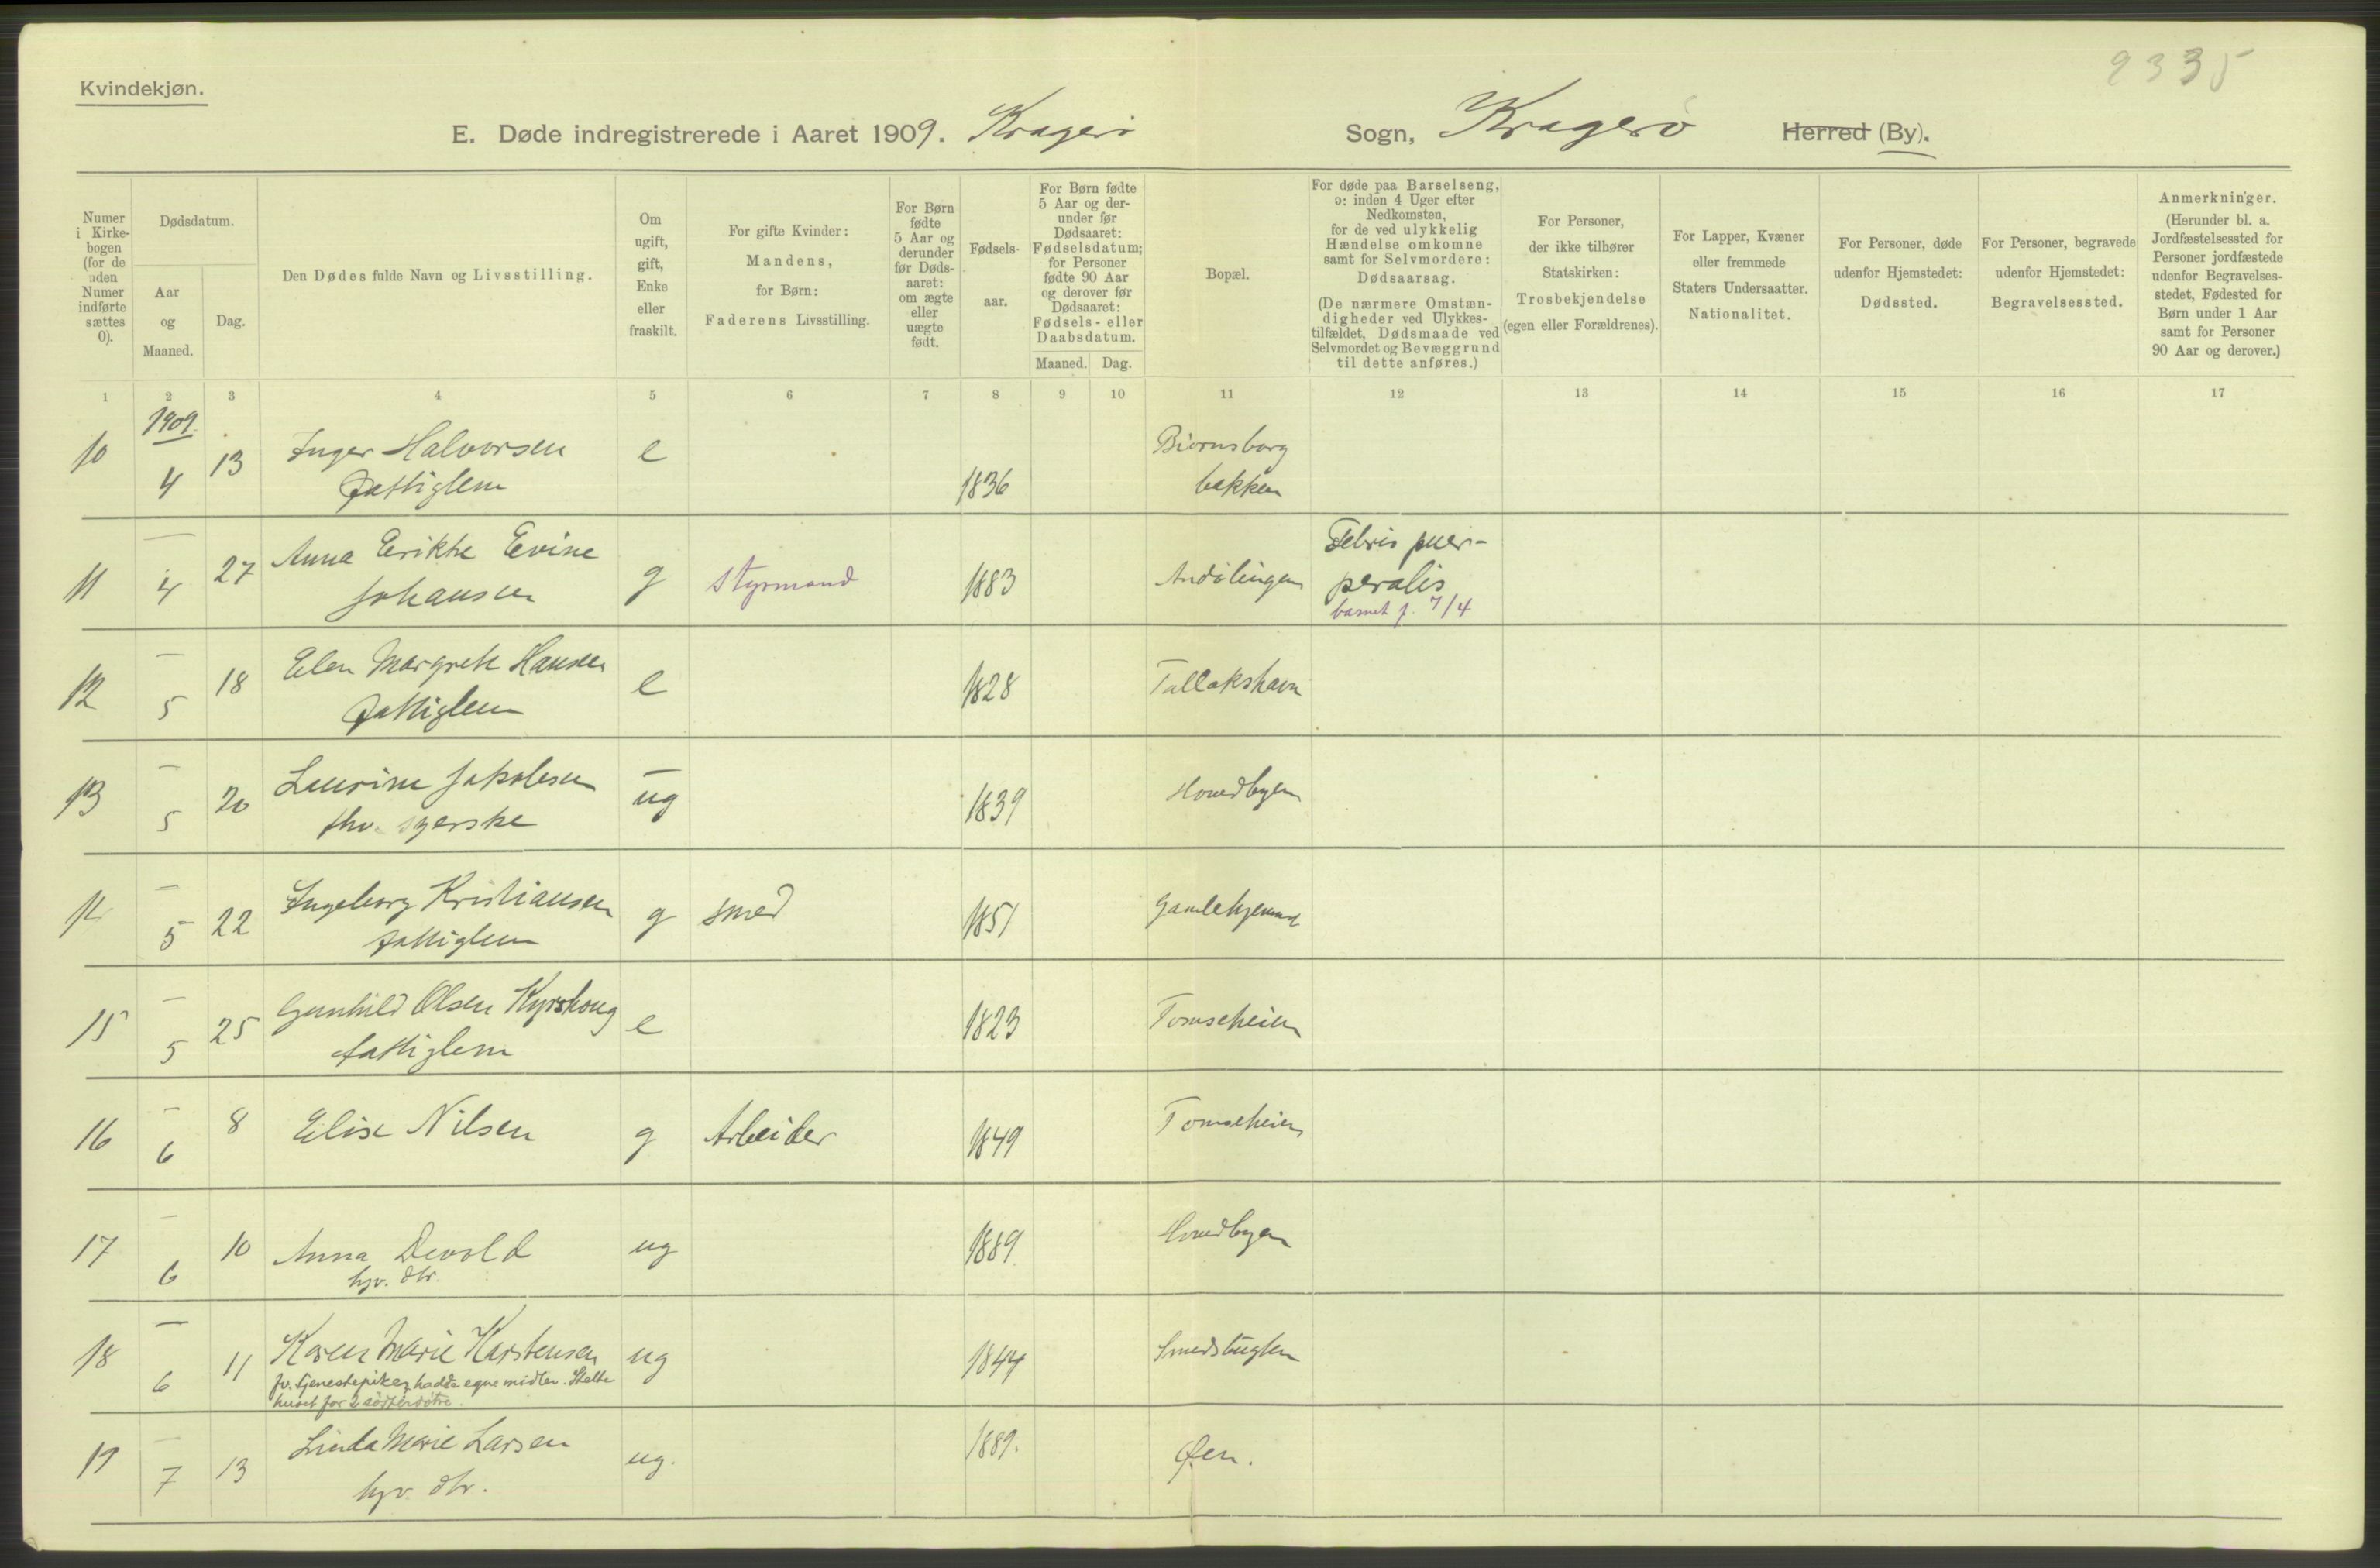 2335
Kvindekjøn.
E. Døde indregistrerede i Aaret 1909. Kragerø Sogn, Kragerø Herred (By).
Numer i Kirke-bogen (for de uden Numer indførte sættes 0).
Dødsdatum.
Aar og Maaned.
Dag.
Den Dødes fulde Navn og Livsstilling.
Om ugift, gift, Enke eller fraskilt.
For gifte Kvinder: Mandens, for Børn: Faderens Livsstilling.
For Børn fødte 5 Aar og derunder før Døds-aaret: om ægte eller uægte født.
Fødsels-aar.
For Børn fødte 5 Aar og der-under før Dødsaaret: Fødselsdatum; for Personer fødte 90 Aar og derover før Dødsaaret: Fødsels- eller Daabsdatum.
Maaned. Dag.
Bopæl.
For døde paa Barselseng, ɔ: inden 4 Uger efter Nedkomsten, for de ved ulykkelig Hændelse omkomne samt for Selvmordere: Dødsaarsag.
(De nærmere Omstæn-digheder ved Ulykkes-tilfældet, Dødsmaade ved Selvmordet og Bevæggrund til dette anføres.)
For Personer, der ikke tilhører Statskirken: Trosbekjendelse (egen eller Forældrenes).
For Lapper, Kvæner eller fremmede Staters Undersaatter. Nationalitet.
For Personer, døde udenfor Hjemstedet: Dødssted.
For Personer, begravede udenfor Hjemstedet: Begravelsessted.
Anmerkninger.
(Herunder bl. a. Jordfæstelsessted for Personer jordfæstede udenfor Begravelses-stedet, Fødested for Børn under 1 Aar samt for Personer 90 Aar og derover.)
1 2 3 4 5 6 7 8 9 10 11 12 13 14 15 16 17
1909.
10 4 13 Inger Halvorsen e 1836 Biørnsborg
Fattiglem bakken
11 — 4 27 Anna Erikke Evine g styrmand 1883 Andølingen Febris puer-
Johansen peralis
barnet f. 7/4
12 — 5 18 Elen Margrete Hansen e 1828 Tallakshavn
Fattiglem
13 — 5 20 Laurine Jakobsen ug 1839 Hovedbyen
fhv. syerske
14 — 5 22 Ingeborg Kristiansen g smed 1851
fattiglem
15 — 5 25 Gunhild Olsen e 1823 Tomseheien
fattiglem
16 — 6 8 Elise Nilsen g Arbeider 1849 Tomseheien
17 — 6 10 Anna Devold ug 1889 Hovedbyen
hjv. dtr.
18 — 6 11 Karen Marie Karstensen ug 1844 Smedsbugten
fv. tjenestepike, hadde egne midler. Stelte
huset for 2 søsterdøtre.
19 — 7 13 Linda Marie Larsen ug. 1889. Øen.
hjv. dtr.